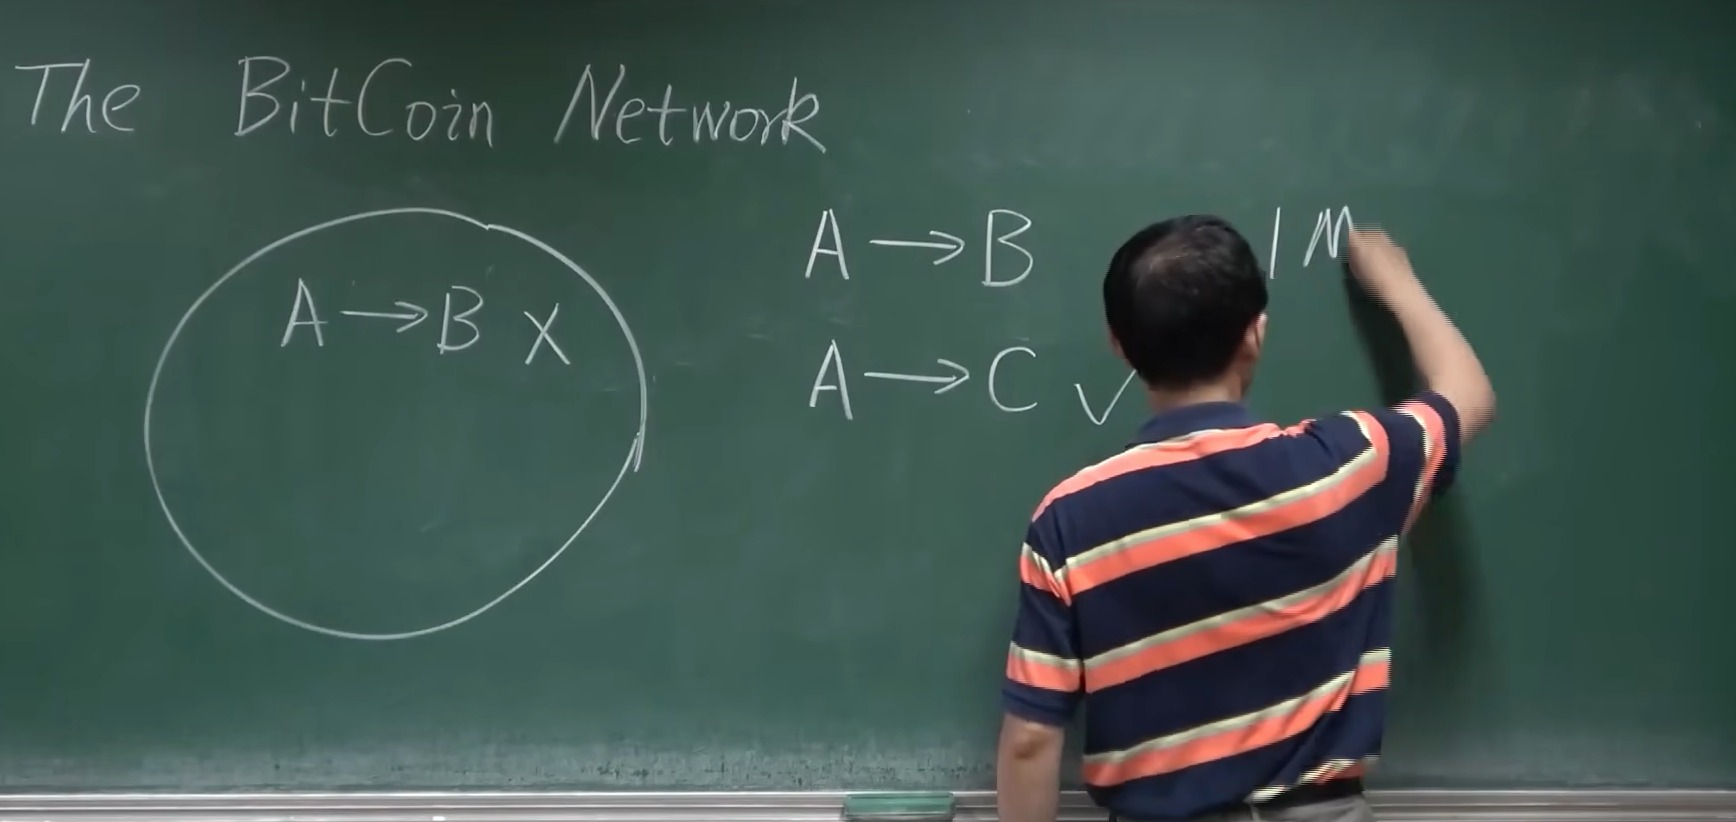 The BitCoin Network
A → B X
A → B
A → C ✓
1 M